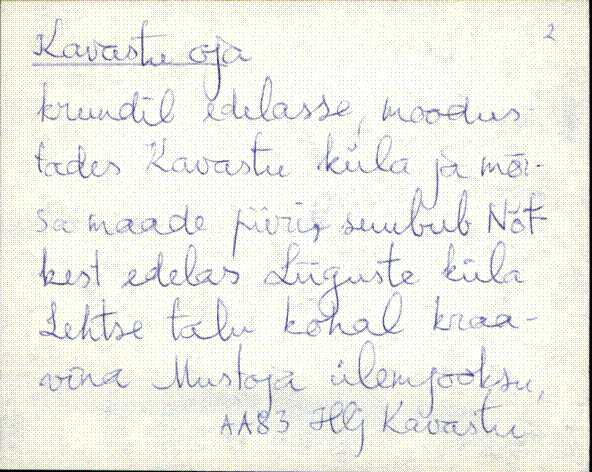 2
Kavastu oja
krundil edelasse, moodus-
tades Kavastu küla ja mõi-
sa maade piiri, suubub Nõt-
kest edelas Lüguste küla
Lehtse talu kohal kraa-
vina Mustoja ülemjooksu,
AA83 Kavastu